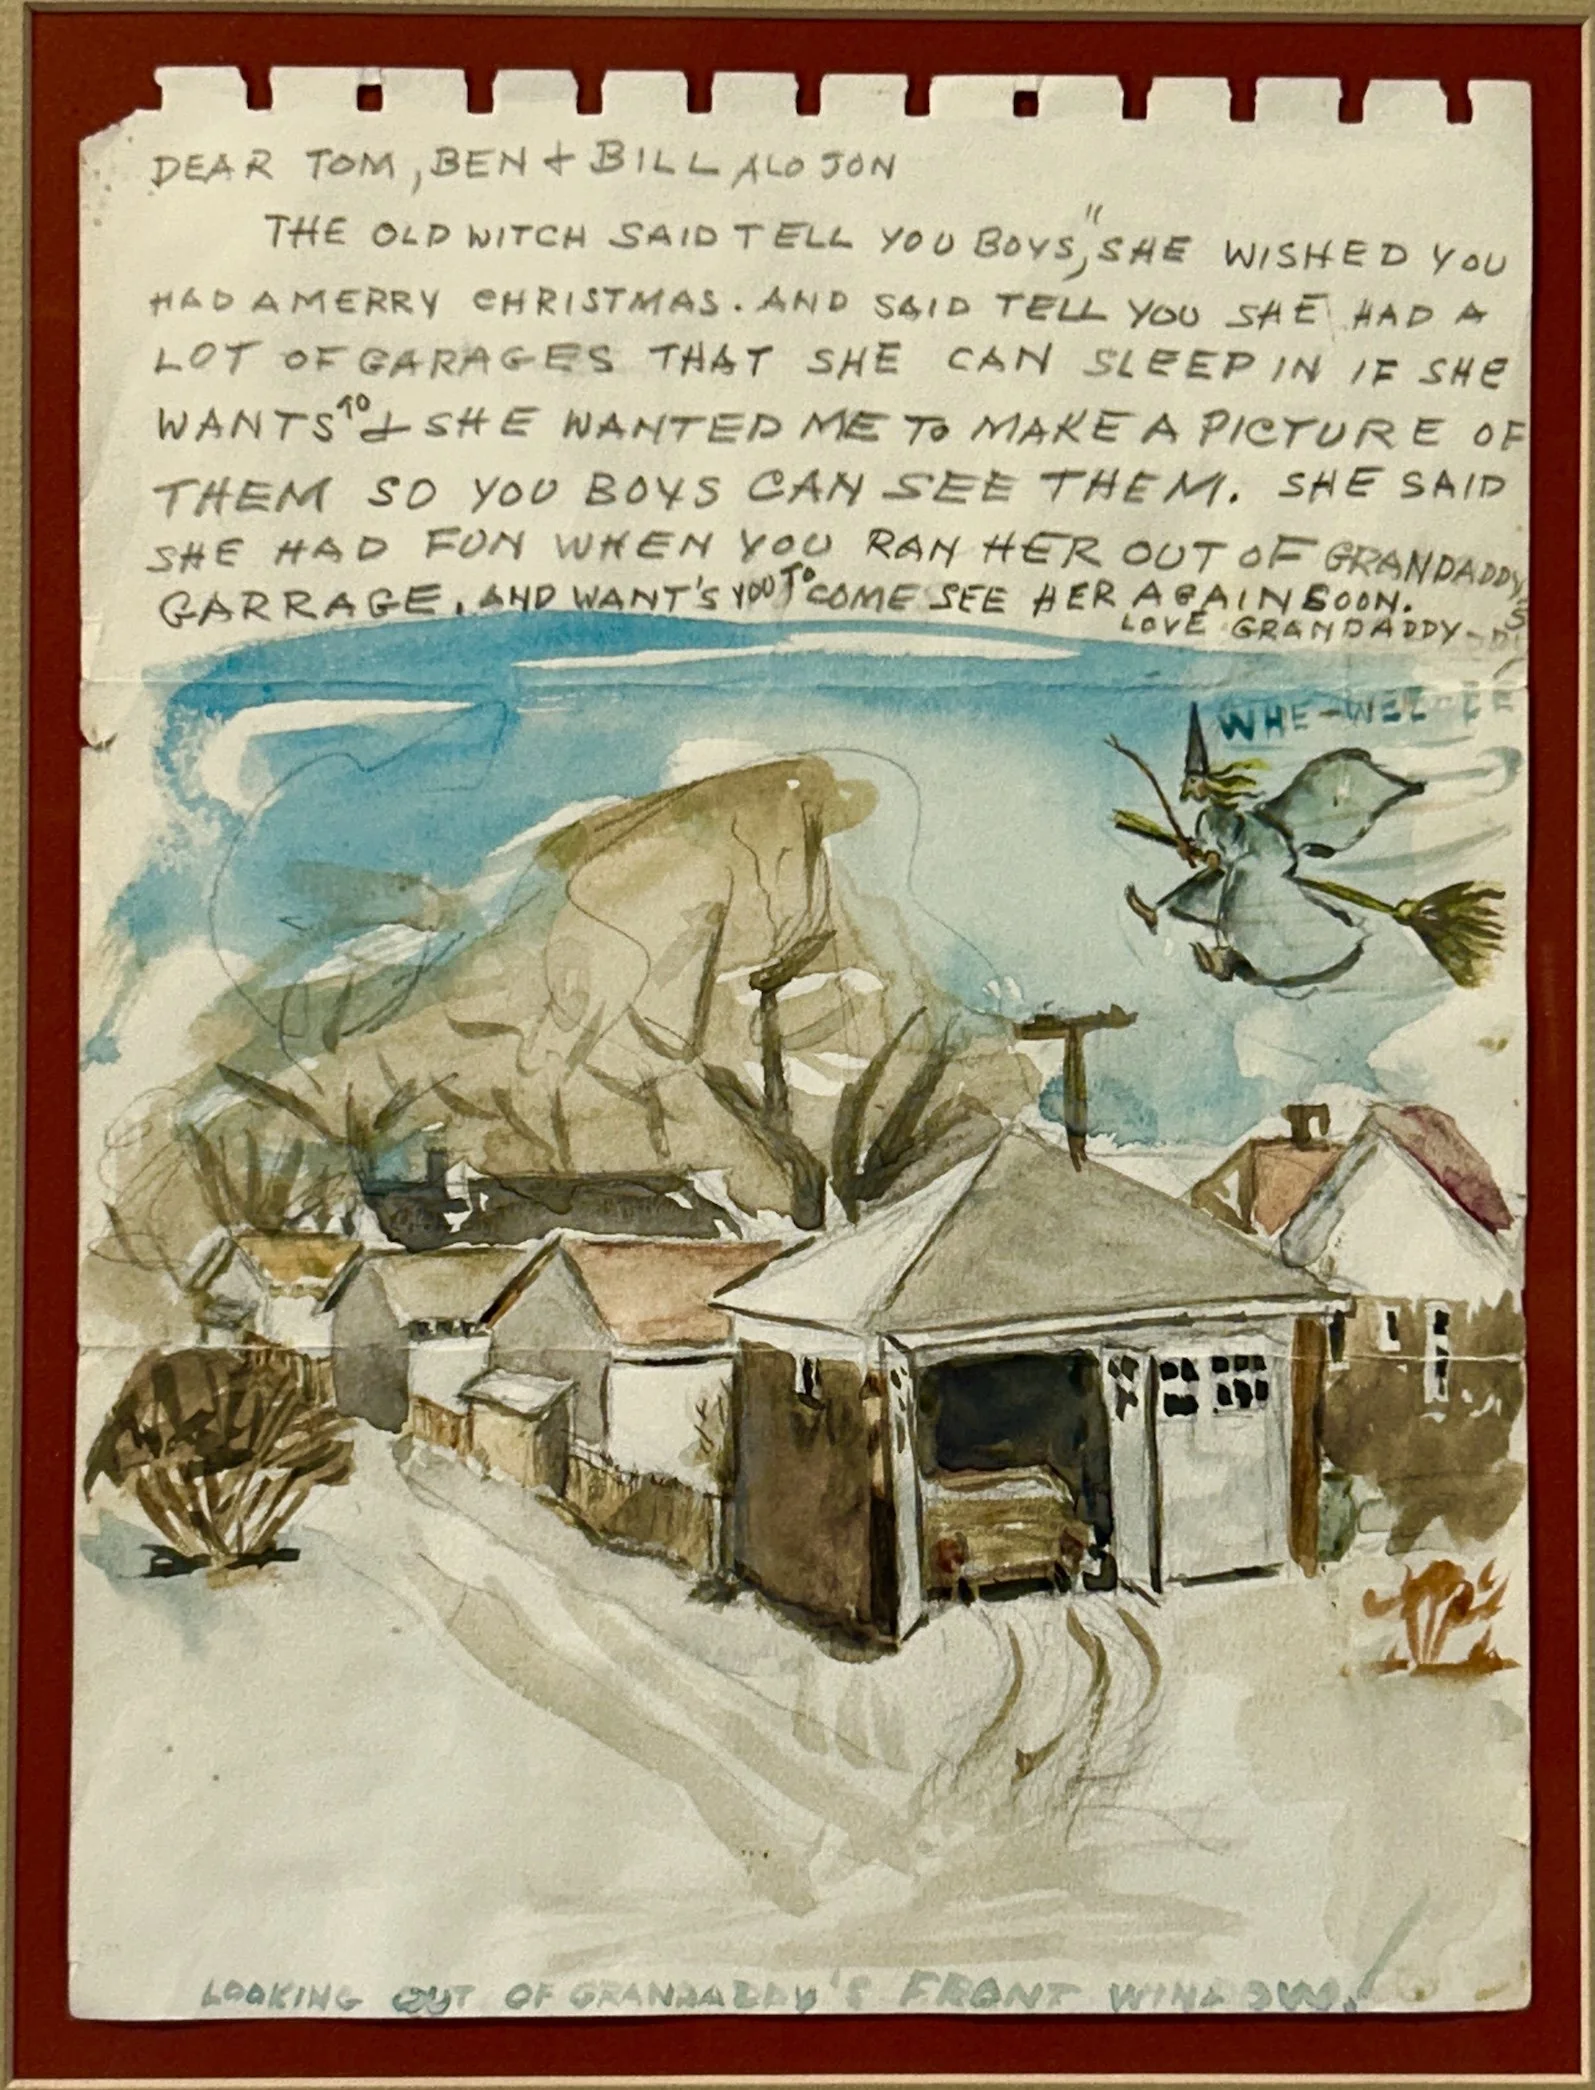 DEAR TOM, BEN & BILL ALO JON
THE OLD WITCH SAID TELL YOU BOYS," SHE WISHED YOU
HAD A MERRY CHRISTMAS. AND SAID TELL YOU SHE HAD A
LOT OF GARAGES THAT SHE CAN SLEEP IN IF SHE
WANTS TO & SHE WANTED ME TO MAKE A PICTURE OF
THEM SO YOU BOYS CAN SEE THEM. SHE SAID
SHE HAD FUN WHEN YOU RAN HER OUT OF GRANDADDY'S
GARRAGE. AND WANT'S YOU TO COME SEE HER AGAIN SOON.
LOVE GRANDADDY
WHE-WEE-EE
LOOKING OUT OF GRANDADDY'S FRONT WINDOW.